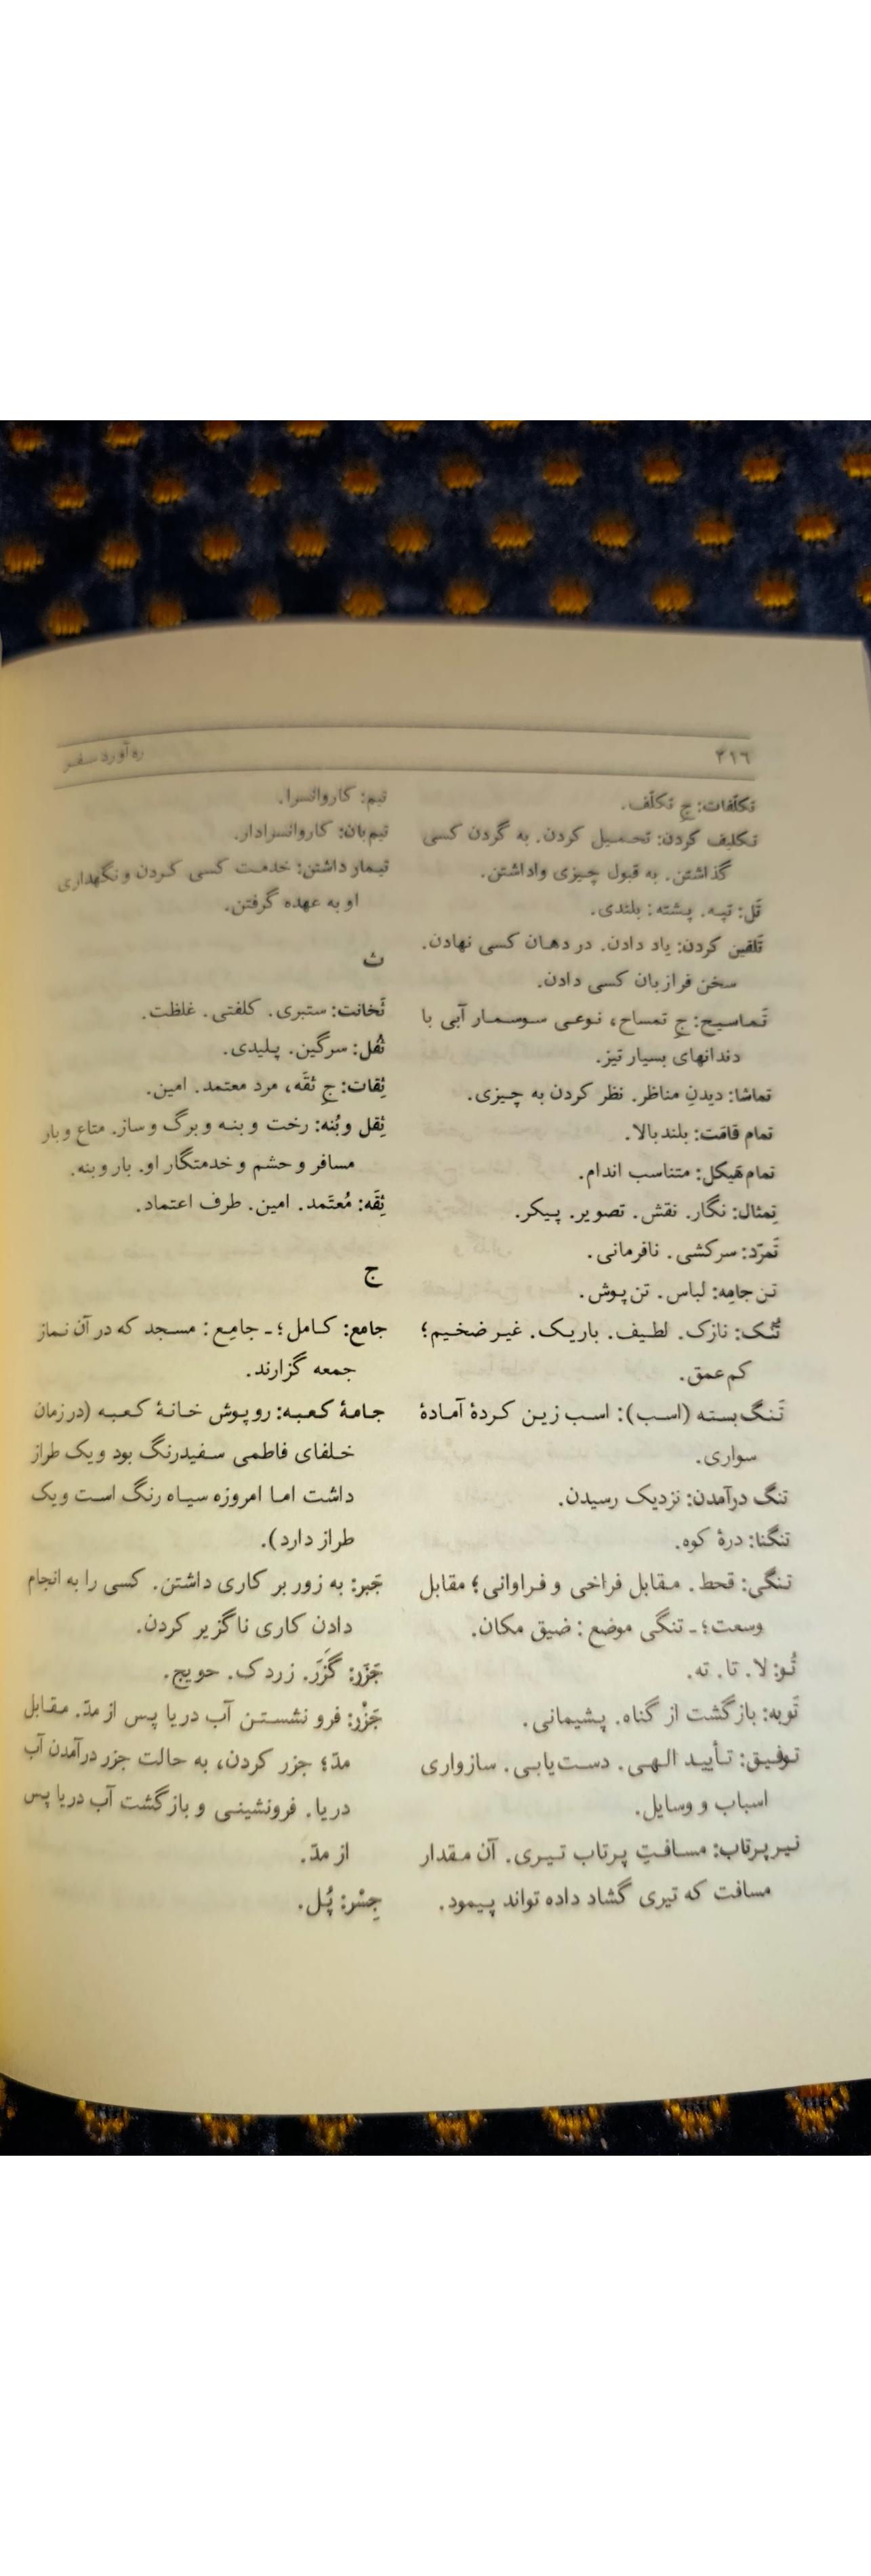 ۳۱۶
ره‌آورد سفر
تکلّفات: جِ تکلّف.
تکلیف کردن: تحمیل کردن. به گردن کسی
گذاشتن. به قبول چیزی واداشتن.
تَل: تپه. پشته: بلندی.
تَلقین کردن: یاد دادن. در دهان کسی نهادن.
سخن فرازبان کسی دادن.
تَماسیح: جِ تمساح، نوعی سوسمار آبی با
دندانهای بسیار تیز.
تماشا: دیدنِ مناظر. نظر کردن به چیزی.
تمام قامَت: بلندبالا.
تمام‌هَیکل: متناسب اندام.
تِمثال: نگار. نقش. تصویر. پیکر.
تَمرّد: سرکشی. نافرمانی.
تن جامِه: لباس. تن پوش.
تُنُک: نازک. لطیف. باریک. غیر ضخیم؛
کم عمق.
تَنگ‌بسته (اسب): اسب زین کردهٔ آمادهٔ
سواری.
تنگ درآمدن: نزدیک رسیدن.
تنگنا: درهٔ کوه.
تنگی: قحط. مقابل فراخی و فراوانی؛ مقابل
وسعت؛ ـ تنگی موضع: ضیق مکان.
تُو: لا. تا. ته.
تَوبه: بازگشت از گناه. پشیمانی.
توفیق: تأیید الهی. دست‌یابی. سازواری
اسباب و وسایل.
تیرپرتاب: مسافتِ پرتاب تیری. آن مقدار
مسافت که تیری گشاد داده تواند پیمود.
تیم: کاروانسرا.
تیم‌بان: کاروانسرادار.
تیمار داشتن: خدمت کسی کردن و نگهداری
او به عهده گرفتن.
ث
ثَخانت: ستبری. کلفتی. غلظت.
ثُفل: سرگین. پلیدی.
ثِقات: جِ ثقَه، مرد معتمد. امین.
ثِقل و بُنه: رخت و بنه و برگ و ساز. متاع و بار
مسافر و حشم و خدمتگار او. بار و بنه.
ثِقَه: مُعتَمد. امین. طرف اعتماد.
ج
جامع: کامل؛ ـ جامِع: مسجد که در آن نماز
جمعه گزارند.
جامهٔ کعبه: روپوش خانهٔ کعبه (در زمان
خلفای فاطمی سفیدرنگ بود و یک طراز
داشت اما امروزه سیاه رنگ است و یک
طراز دارد).
جَبر: به زور بر کاری داشتن. کسی را به انجام
دادن کاری ناگزیر کردن.
جَزَر: گَزَر. زردک. حویج.
جَزْر: فرو نشستن آب دریا پس از مدّ. مقابل
مدّ؛ جزر کردن، به حالت جزر درآمدن آب
دریا. فرونشینی و بازگشت آب دریا پس
از مدّ.
جِسْر: پُل.